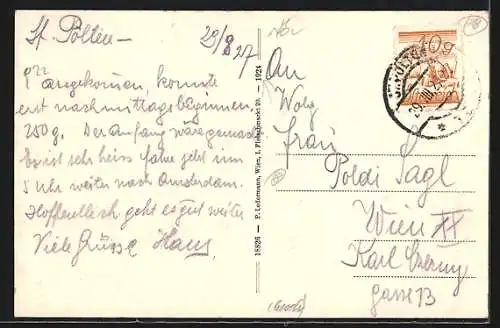 St. Pölten – 29/8 27
1 22 angekommen, konnte
erst nachmittags beginnen,
250 g. Der Anfang wäre gemacht
Es ist sehr heiss fahre jetzt um
5 Uhr weiter nach Amsterdam.
Hoffentlich geht es gut weiter
Viele Grüsse Hans
18826 – P. Ledermann, Wien, I. Fleischmarkt 20. – 1924
10g
ST. PÖLTEN
An
Wolg
Frau
Poldi Sagl
Wien XX
Karl Czerny
gasse 13